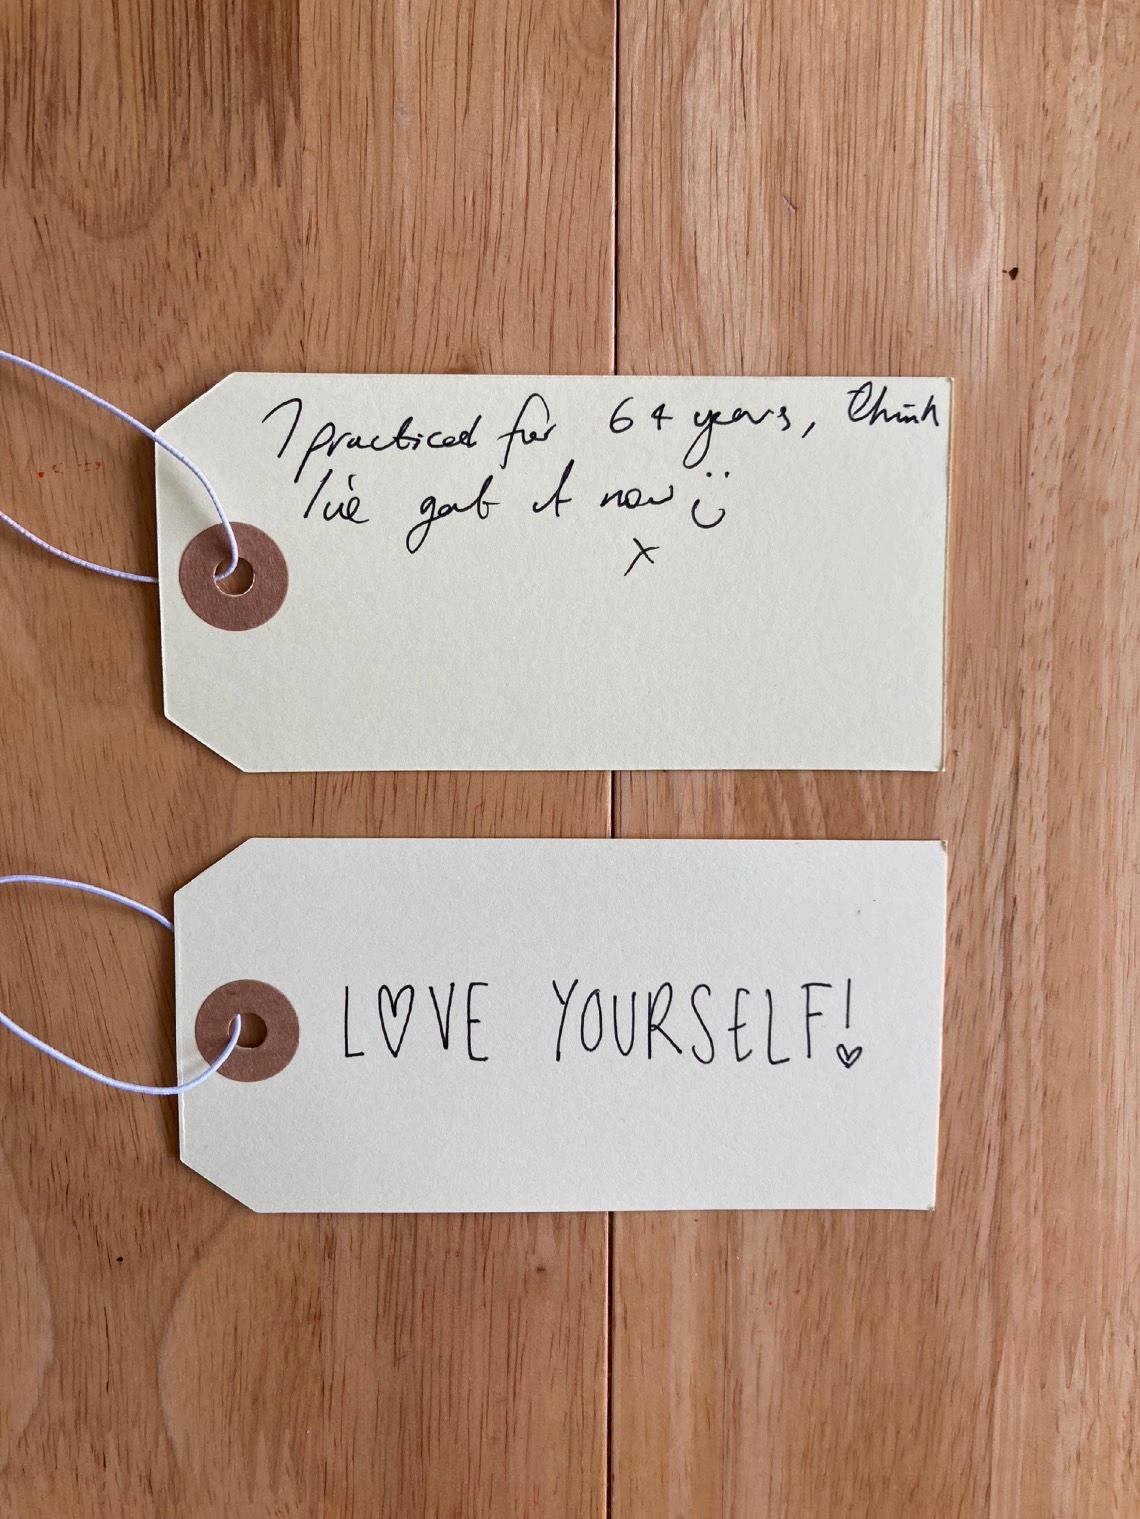 I practiced for 64 years, think
I've got it now ☺
x
LOVE YOURSELF!